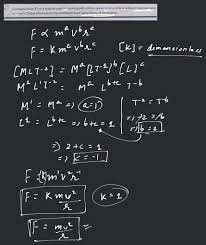 F ∝ m^a v^b r^c
F = K m^a v^b r^c
[K] = dimensionless
[MLT^-2] = M^a [LT^-1]^b [L]^c
M^1 L^1 T^-2 = M^a L^b+c T^-b
M^1 = M^a => a=1
T^-2 = T^-b
=> -2 = -b
=> b = 2
L^1 = L^b+c => b+c = 1
=> 2+c = 1
=> c = -1
F = (K) m^1 v^2 r^-1
F = K mv^2/r
K = 1
F = mv^2/r =